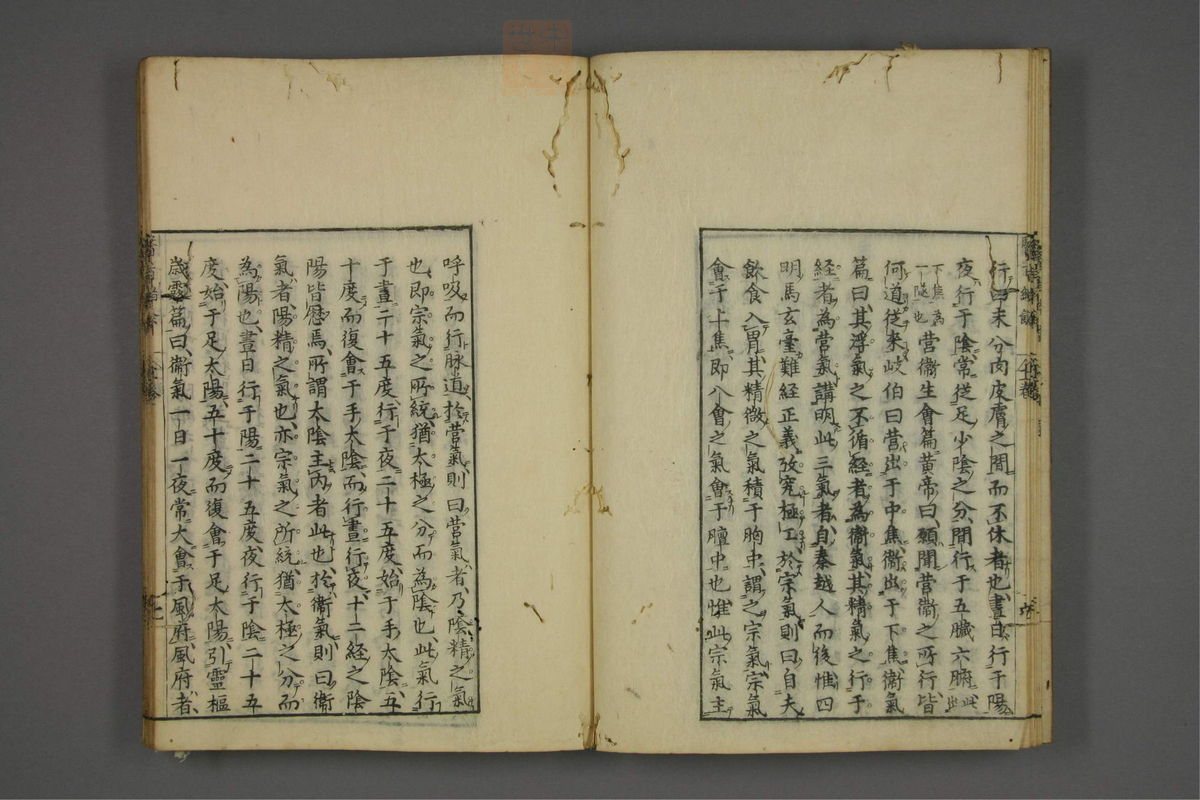 行四末分肉皮膚之間而不休者也晝日行于陽
夜行于陰常從足少陰之分間行于五臟六腑此
下焦為
一隧也
營衞生會篇黄帝曰願聞營衞之所行皆
何道從來岐伯曰営出于中焦衞出于下焦衞氣
篇曰其浮氣之不循経者為衞氣其精氣之行于
経者為営氣講明此三氣者自秦越人而後惟四
明馬玄臺難経正義攷究極工於宗氣則曰自夫
飲食入胃其精微之氣積于胸中謂之宗氣宗氣
會于上焦即八會之氣會于膻中也惟此宗氣主
呼吸而行脉道於営氣則曰営氣者乃陰精之氣
也即宗氣之所統猶太極之分而為陰也此氣行
于晝二十五度行于夜二十五度始于手太陰五
十度而復會于手太陰而行晝行夜十二経之陰
陽皆歴焉所謂太陰主内者此也於衞氣則曰衞
氣者陽精之氣也亦宗氣之所統猶太極之分而
為陽也晝日行于陽二十五度夜行于陰二十五
度始于足太陽五十度而復會于足太陽引靈樞
歳露篇曰衞氣一日一夜常大會于風府風府者